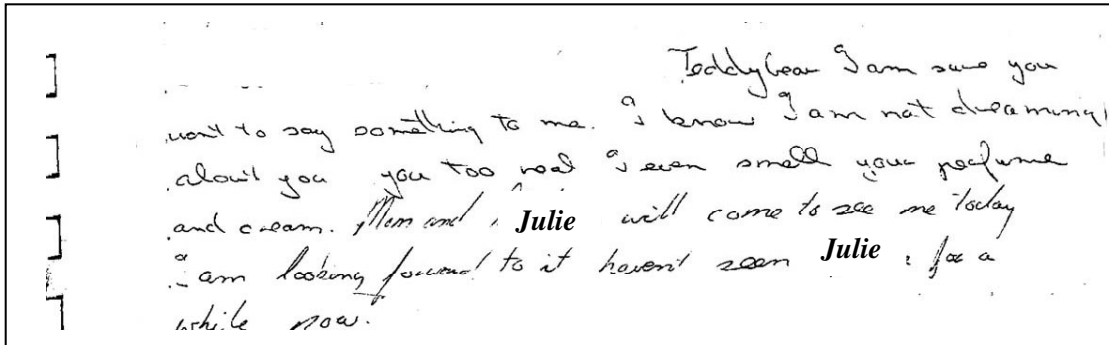 Teddybear I am sure you
want to say something to me. I know I am not dreaming
about you you too real I even smell your perfume
and cream. Mom and Julie will come to see me today
I am looking forward to it haven't seen Julie for a
while now.